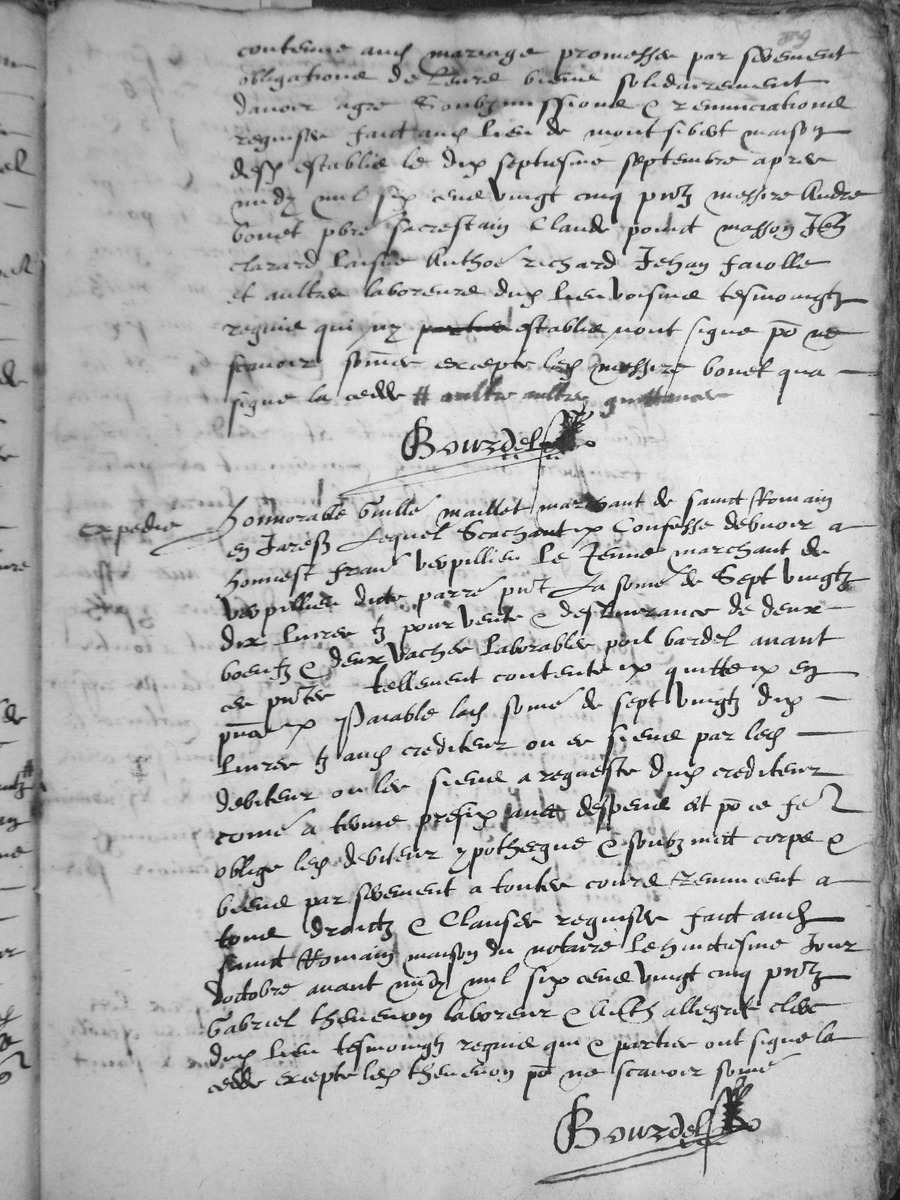 contenue aud mariage promesses par serement
obligations de leurs biens solidairement
davoir agre Soubzmissions & renunciations
requises faict aud lieu de montsibert maison
desd establis le dix septiesme septembre apres
midy mil six cens vingt cinq pntz messire Andre
bonet pbre sacrestain Claude poinct masson Jeh
clarard laisne Anthoe richard Jehan faiolle
et aultres laboreurs dud lieu voisins tesmoingtz
requis qui ny establis nont signe po ne
scavoir somes excepte led messire bonet qua
signe la cedde # aultre aultres quittances
Bourdel
Expedie
honnorable Guille maillet marchant de sainct Romain
en Jarestz Lequel Scachant Confesse debvoir a
honnest frans verpillieu le Jeune marchant de
verpillieu dicte parre pnt La some de Sept vingtz
dix livres tz pour vente & deslivrance de deux
boeufz & deux vaches laborables poil bardel avant
ces pntes tellement contente quitte en
pnce Paiable lad some de sept vingtz dix
livres tz aud crediteur ou es siens par led
debiteur ou les siens a requeste dud crediteur
come a terme prefix avec despens et po ce fe
oblige led debiteur ypotheque & soubzmect corps &
biens par serement a toutes cours Renuncent a
tous droictz & Clauses requises faict aud
sainct Romain maison du notaire le huictiesme Jour
doctobre avant midy mil six cens vingt cinq pntz
Gabriel thevenon laboreur & Anth allegret clerc
dud lieu tesmoingtz requis qui & parties ont signe la
cedde excepte led thevenon po ne scavoir some
Bourdel